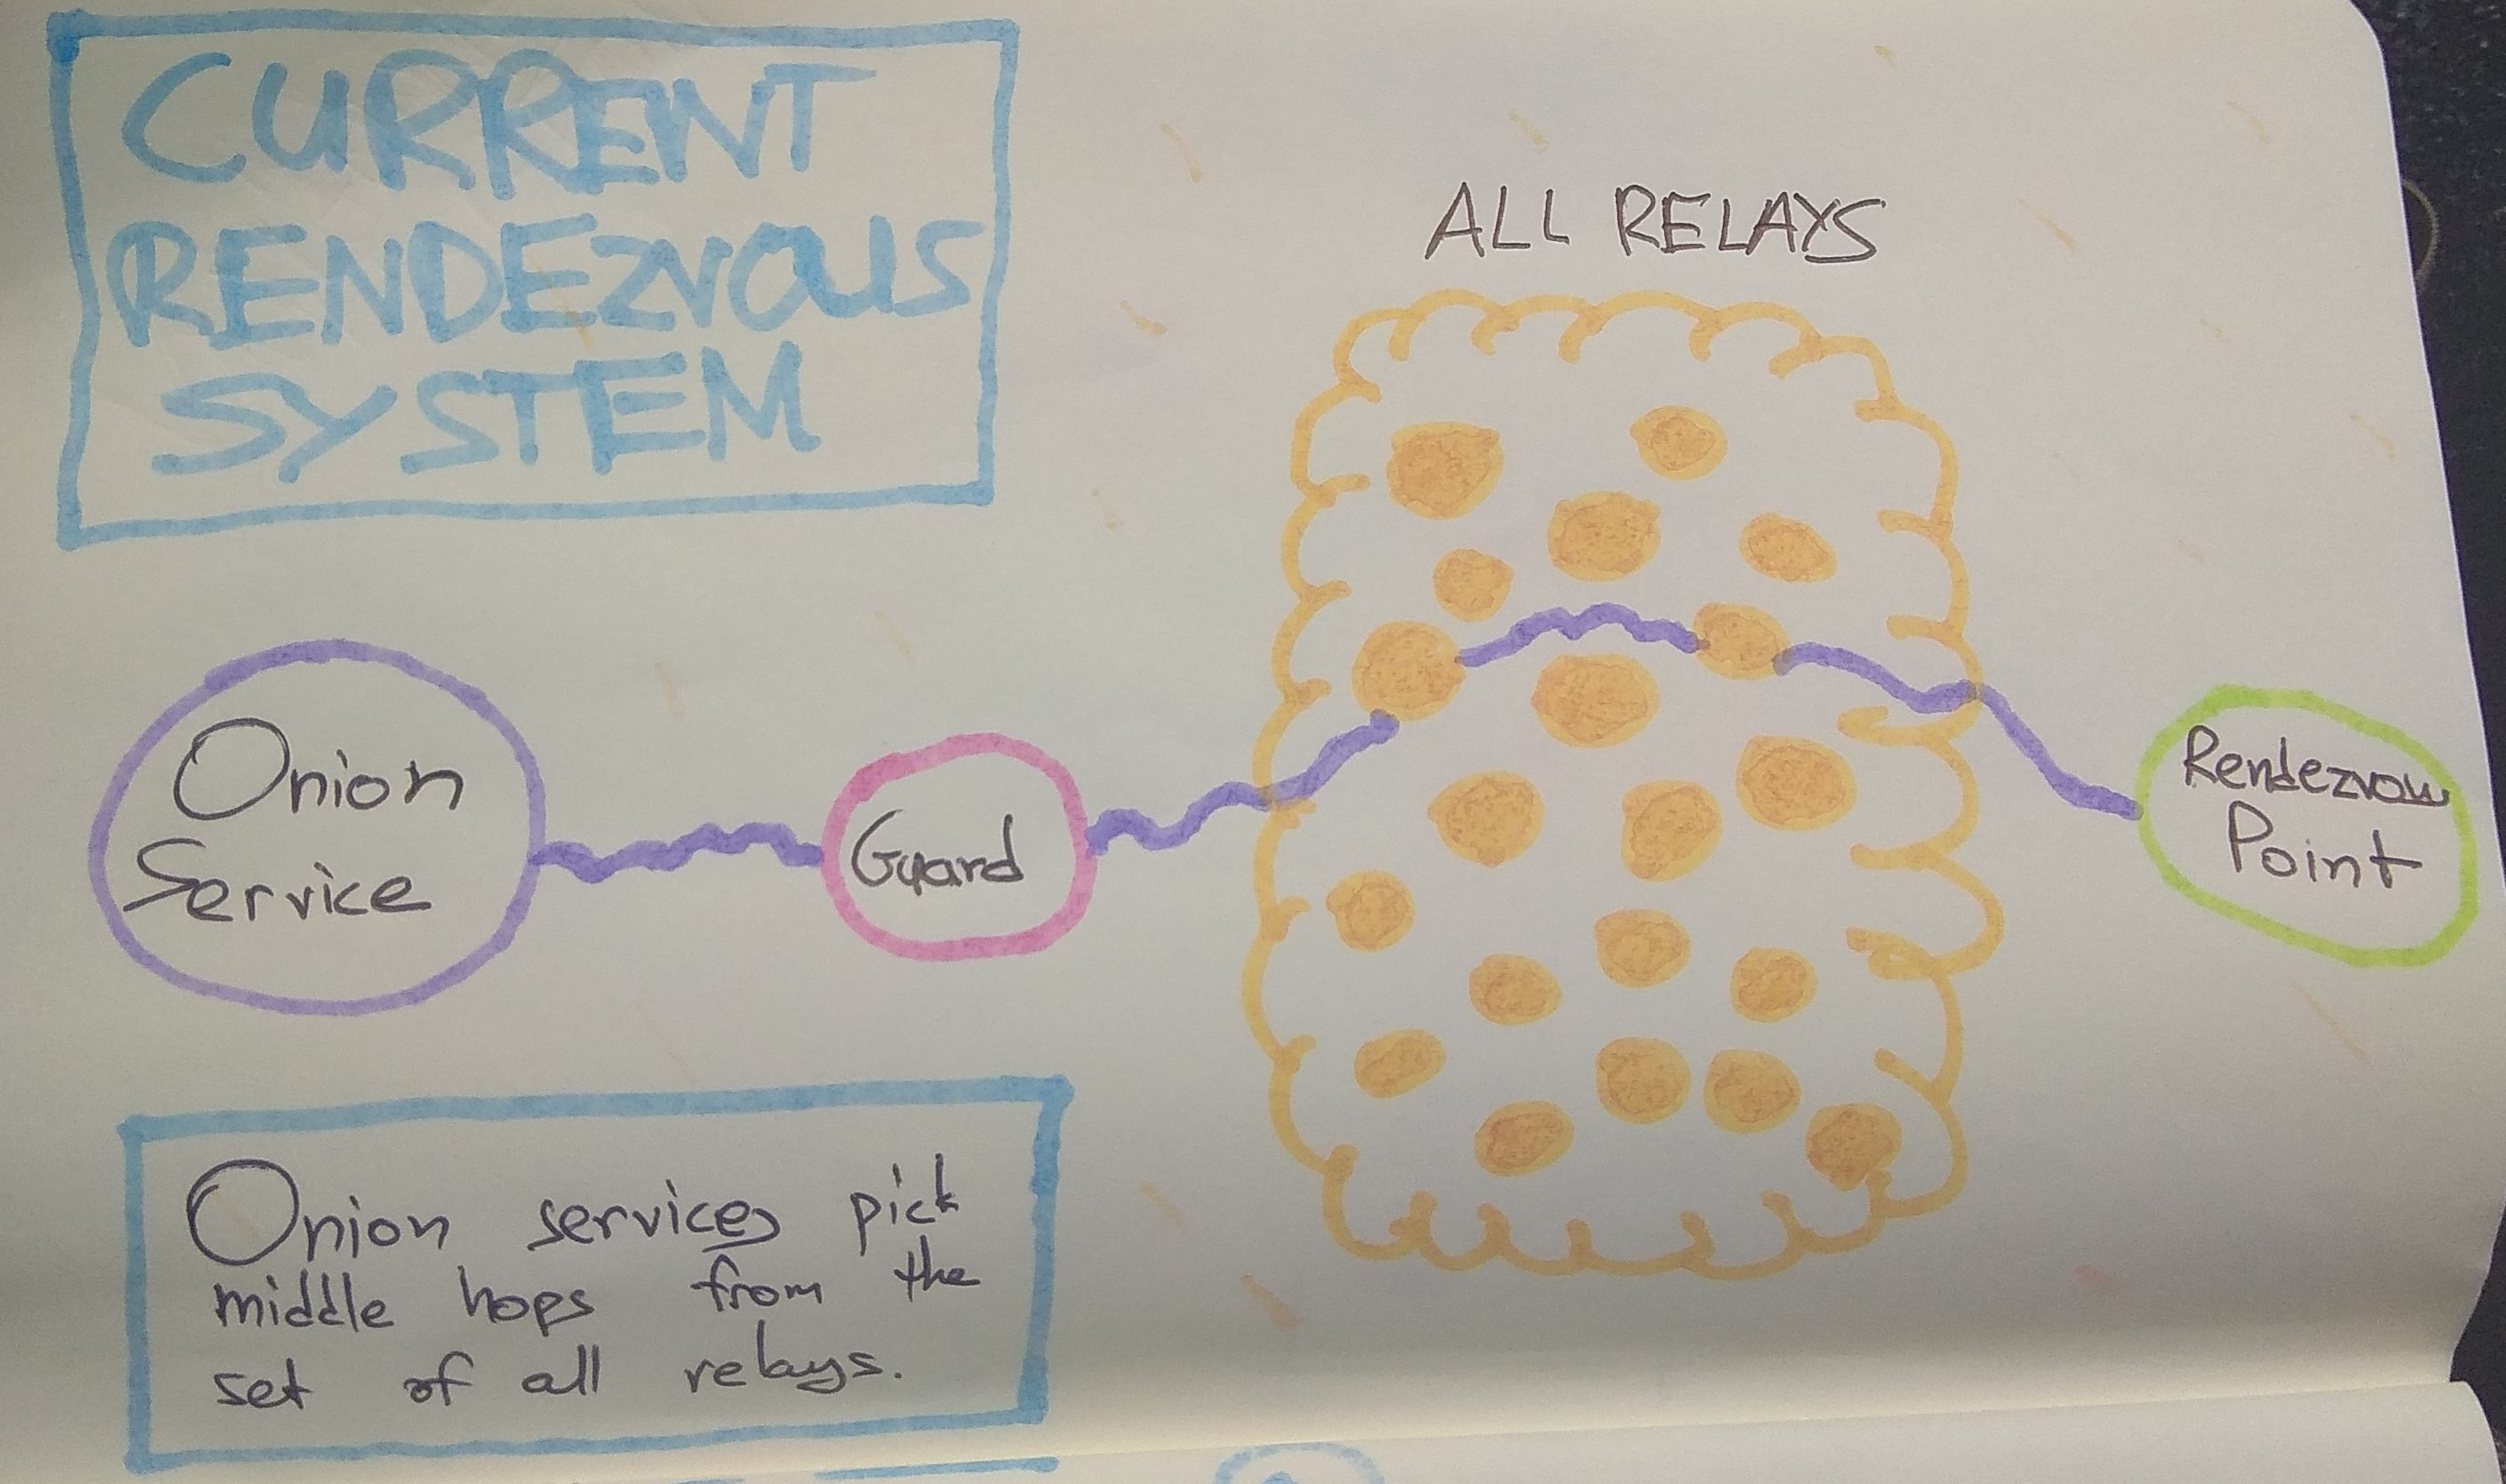 CURRENT
RENDEZVOUS
SYSTEM
ALL RELAYS
Onion
Service
Guard
Rendezvous
Point
Onion services pick
middle hops from the
set of all relays.